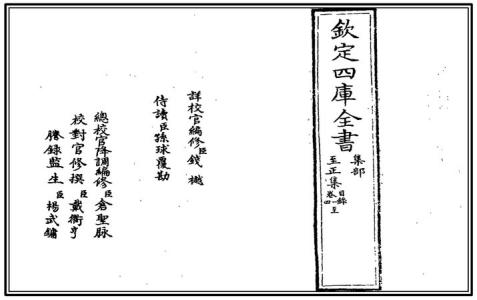 欽定四庫全書
集部
至正集 目錄 卷一至四
詳校官編修臣錢樾
侍讀臣孫球覆勘
總校官降調編修臣倉聖脉
校對官修撰臣戴衢亨
謄錄監生臣楊武鏞